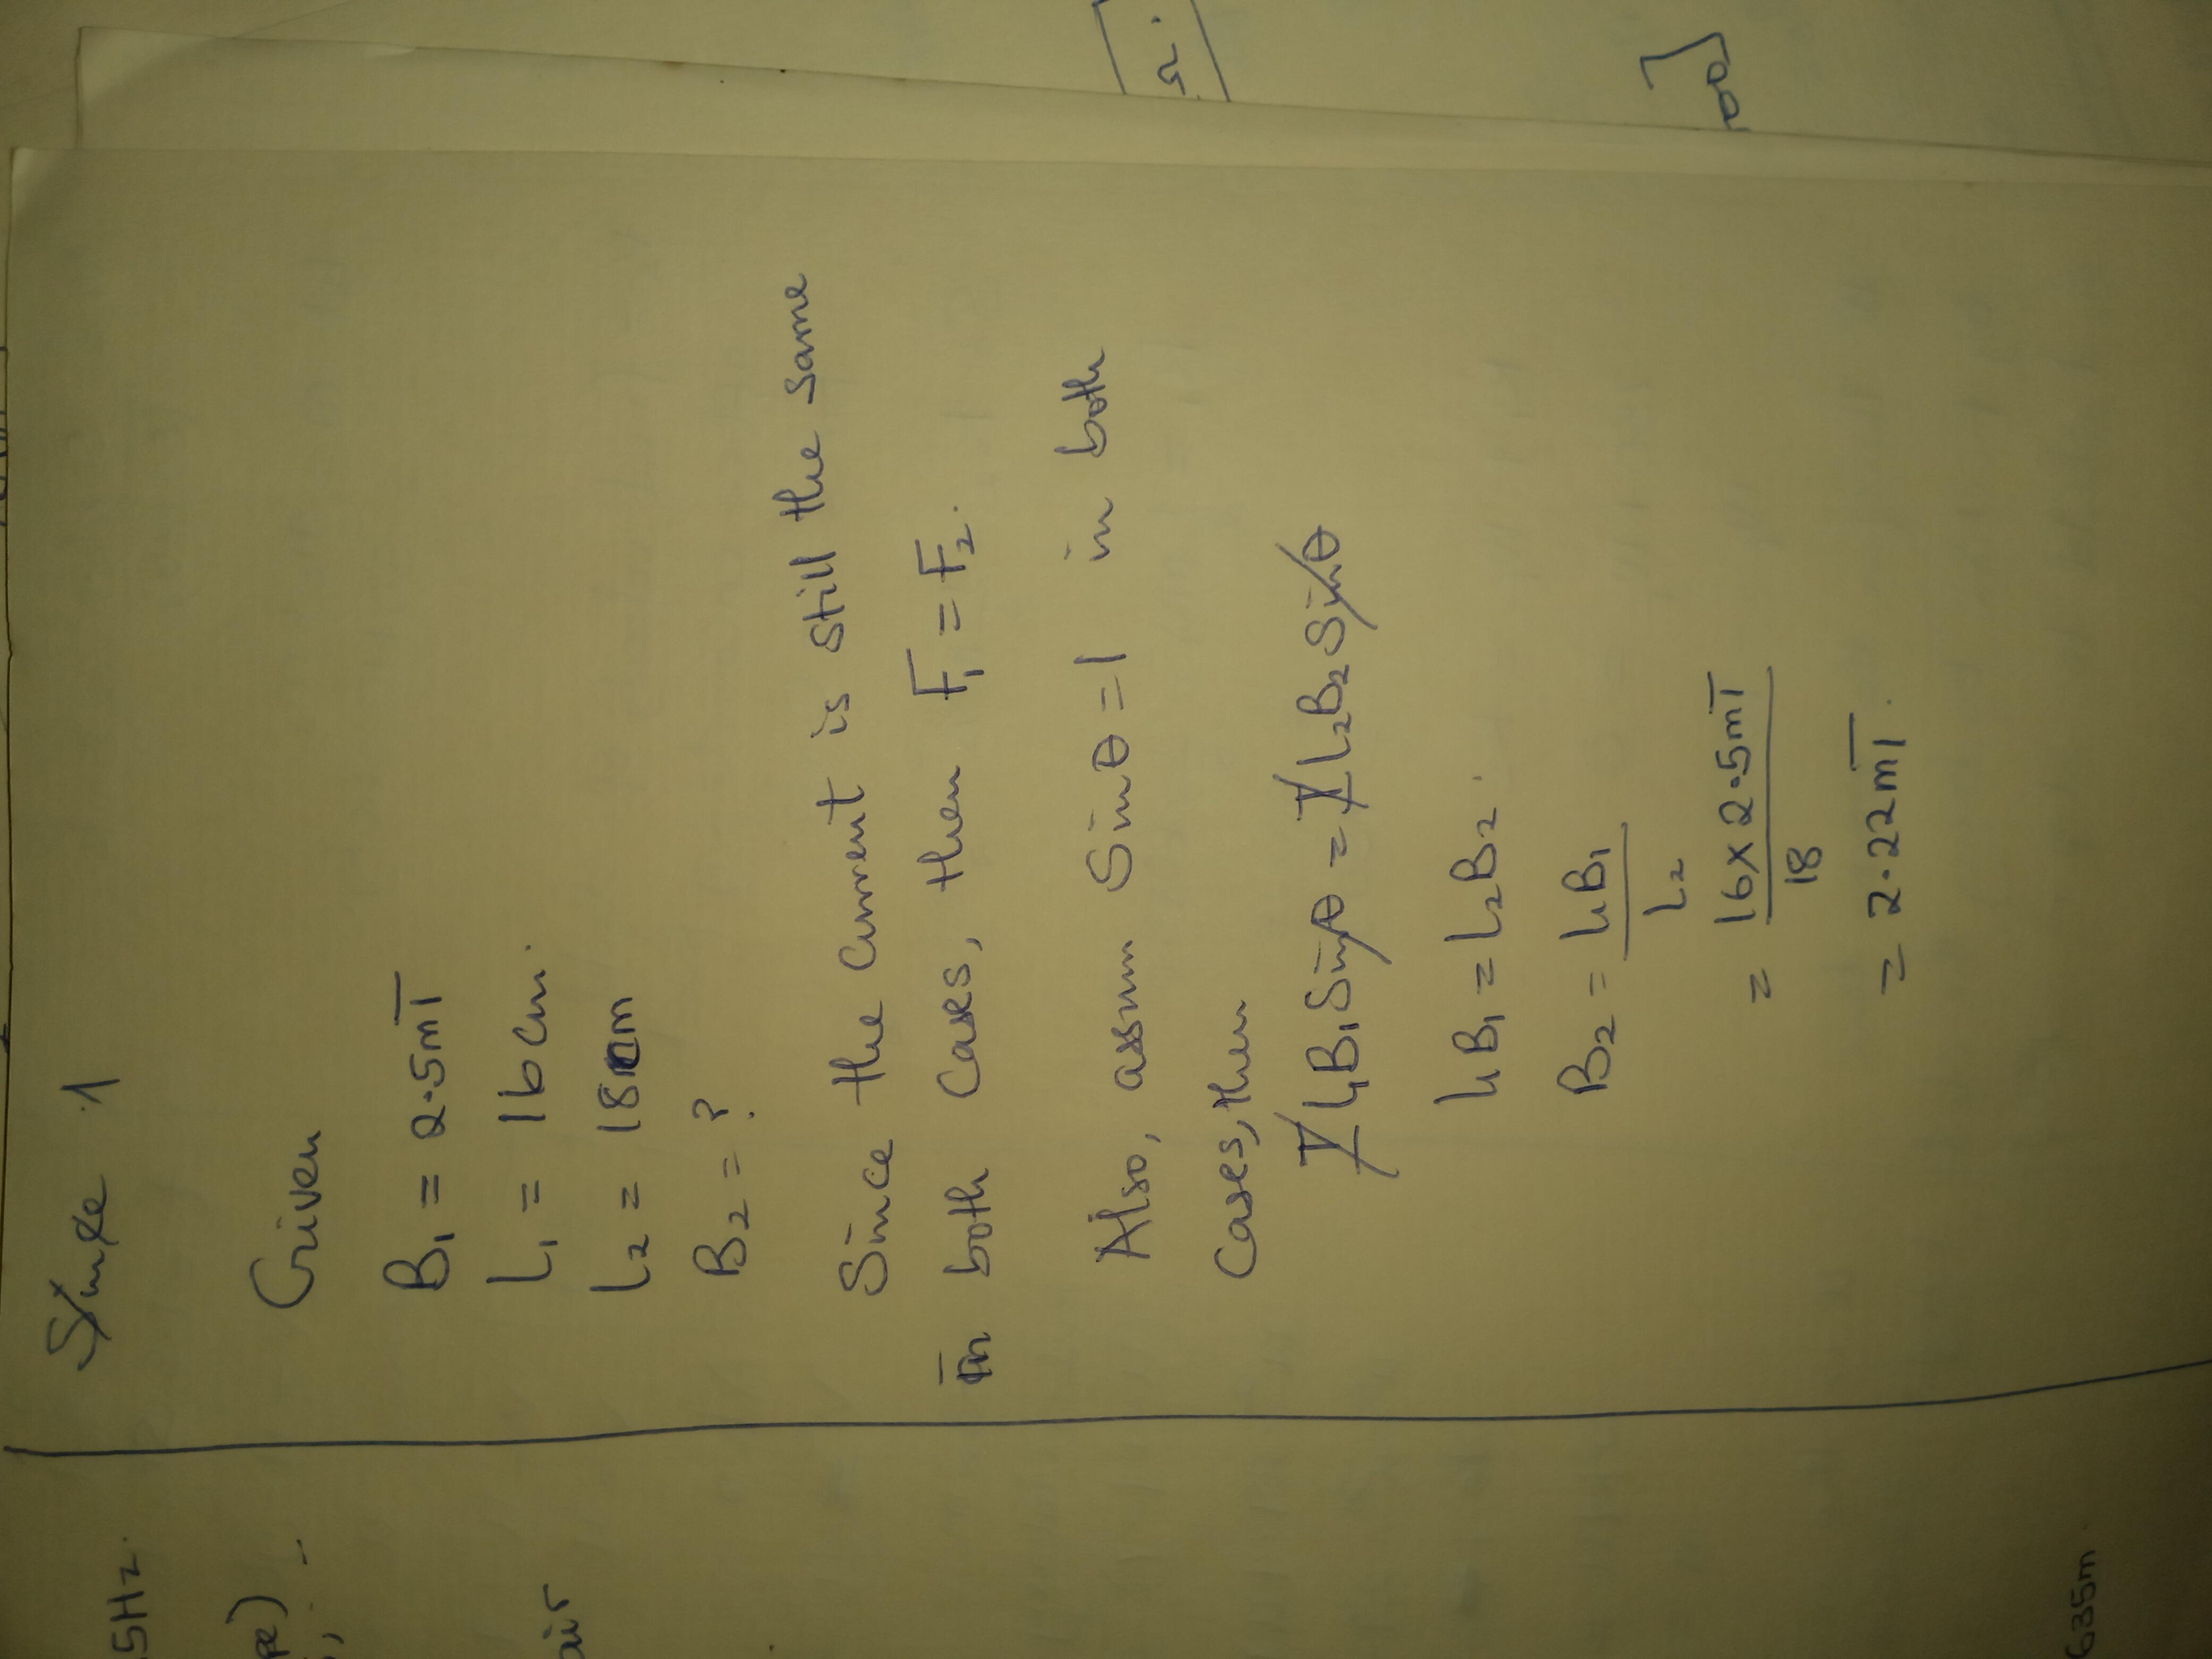 Given
B₁ = 2.5mT
L₁ = 16cm.
L₂ = 18cm
B₂ = ?
Since the current is still the same
in both cases, then F₁ = F₂.
Also, assum Sinθ = 1 in both
cases, then
I L₁B₁Sinθ = I L₂B₂Sinθ
L₁B₁ = L₂B₂.
B₂ = L₁B₁
L₂
= 16 x 2.5mT
18
= 2.22mT.
5Hz.
pe)
air
635m.